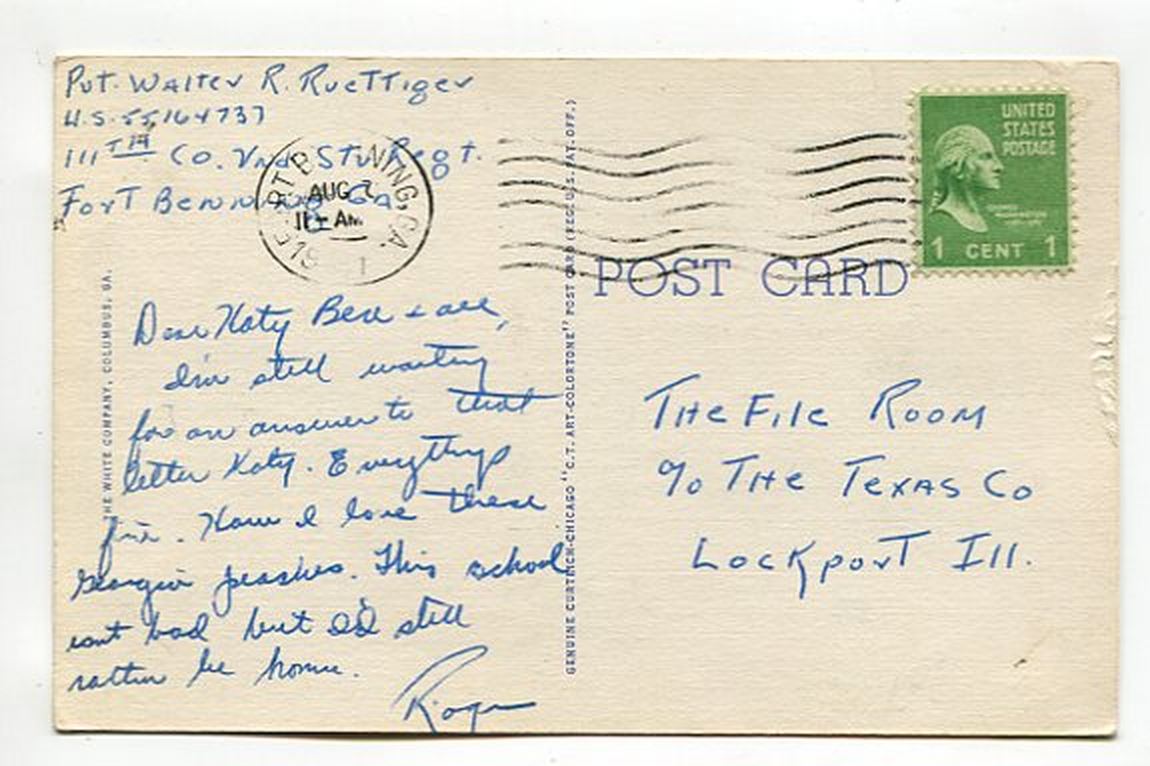 Pvt. Walter R. Ruettiger
U.S. 55164737
111TH Co. 2nd. Stu Regt.
Fort Benning Ga.
AUG 7
11 - AM
19 1
UNITED
STATES
POSTAGE
1 CENT 1
POST CARD
THE WHITE COMPANY, COLUMBUS, GA.
GENUINE CURTEICH-CHICAGO "C.T. ART-COLORTONE" POST CARD (REG. U.S. PAT. OFF.)
Dear Katy Bere & all,
I'm still waiting
for an answer to that
letter Katy. Everything
fine. How I love these
Georgia peaches. This school
isnt bad but I'd still
rather be home.
Roger
The File Room
% The Texas Co
Lockport Ill.